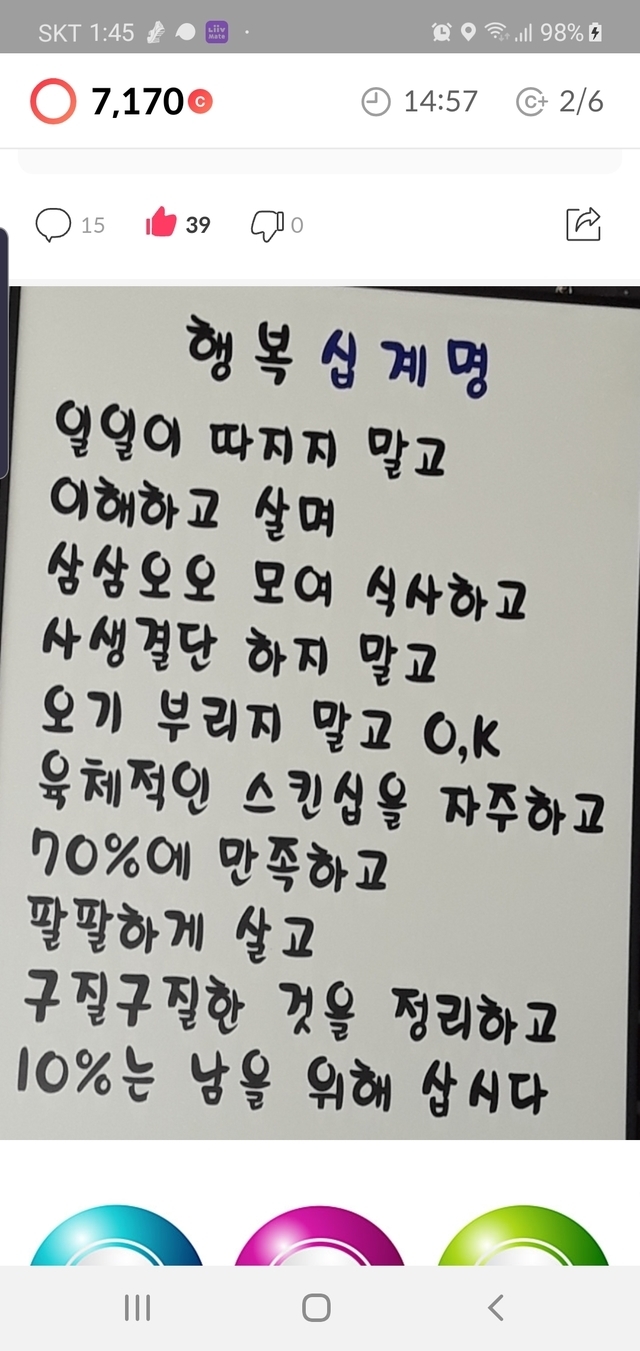 SKT 1:45 Liiv Mate 98%
7,170 C 14:57 C+ 2/6
15 39 0
행복 십계명
일일이 따지지 말고
이해하고 살며
삼삼오오 모여 식사하고
사생결단 하지 말고
오기 부리지 말고 O,K
육체적인 스킨십을 자주하고
70%에 만족하고
팔팔하게 살고
구질구질한 것을 정리하고
10%는 남을 위해 삽시다